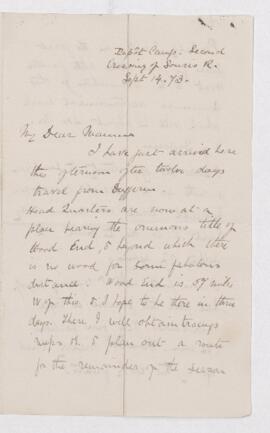 Dep't Camp. Second
Crossing of Souris R.
Sept 14. 73.
My Dear Mamma
I have just arrived here
this afternoon after twelve days
travel from Dufferin.
Head Quarters are now at a
place bearing the ominous title of
Wood End, & beyond which there
is no wood for some fabulous
distance. Wood End is 37 miles
W of this & I hope to be there in three
days. There I will obtain
maps & & plan out a route
for the remainder of the season